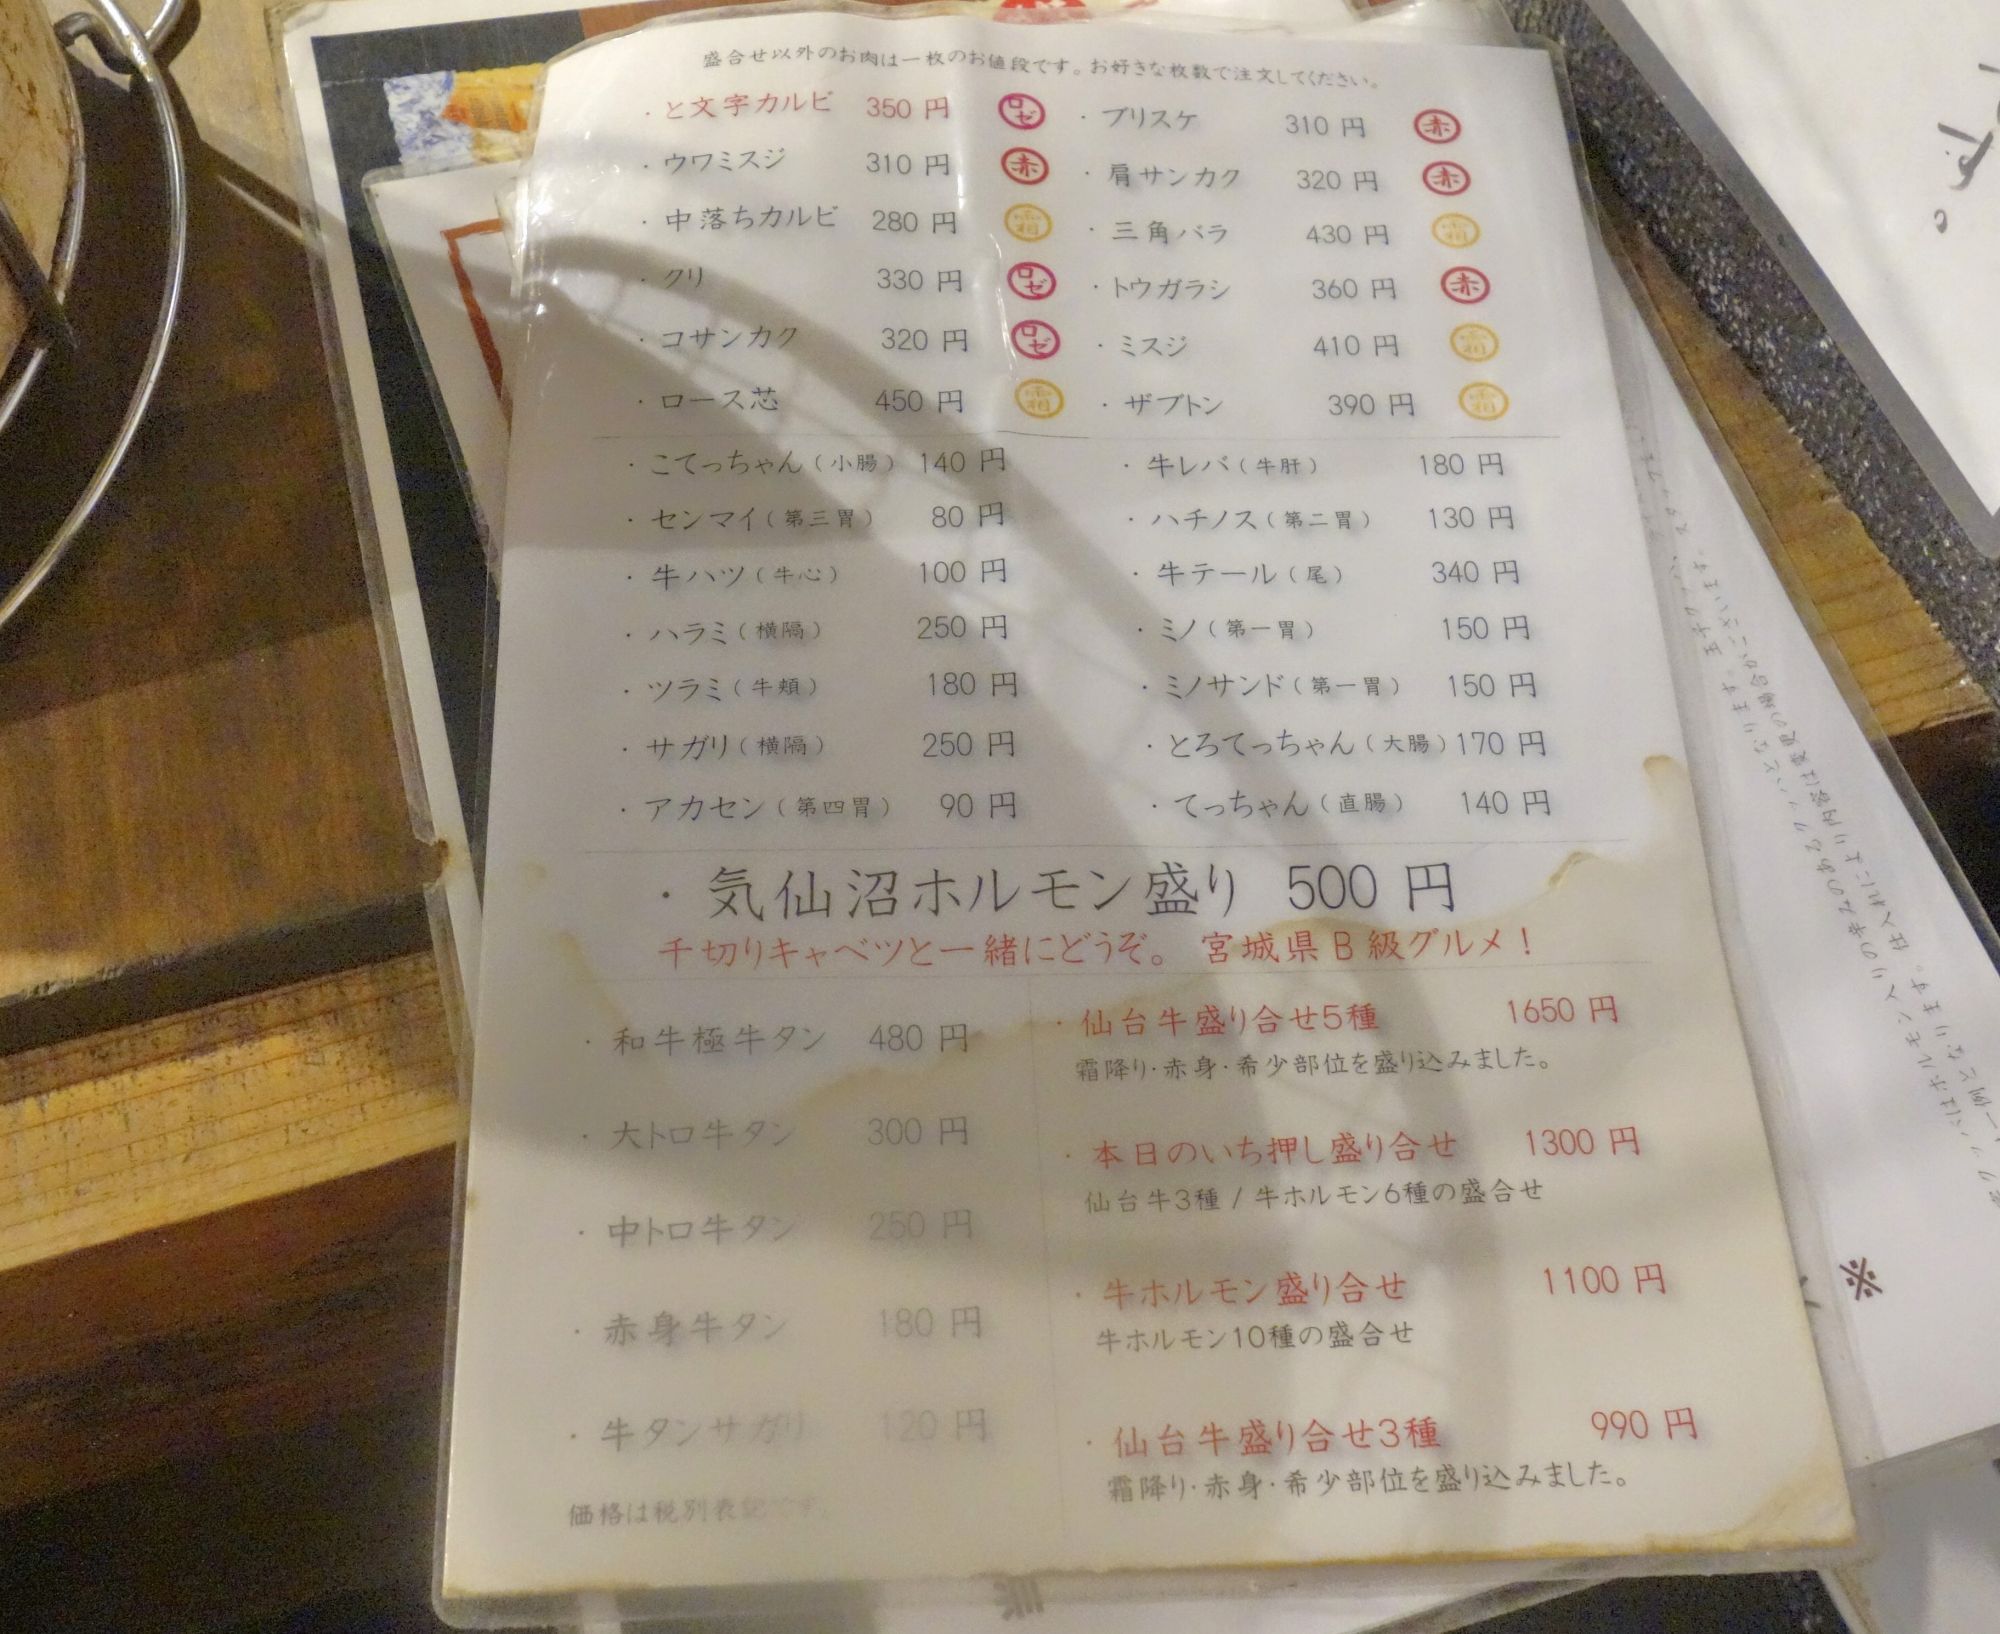 盛合せ以外のお肉は一枚のお値段です。お好きな枚数で注文してください。
・と文字カルビ 350 円 ロゼ ・ブリスケ 310 円 赤
・ウワミスジ 310 円 赤 ・肩サンカク 320 円 赤
・中落ちカルビ 280 円 霜 ・三角バラ 430 円 霜
・クリ 330 円 ロゼ ・トウガラシ 360 円 赤
・コサンカク 320 円 ロゼ ・ミスジ 410 円 霜
・ロース芯 450 円 霜 ・ザブトン 390 円 霜
・こてっちゃん（小腸） 140 円 ・牛レバ（牛肝） 180 円
・センマイ（第三胃） 80 円 ・ハチノス（第二胃） 130 円
・牛ハツ（牛心） 100 円 ・牛テール（尾） 340 円
・ハラミ（横隔） 250 円 ・ミノ（第一胃） 150 円
・ツラミ（牛頬） 180 円 ・ミノサンド（第一胃） 150 円
・サガリ（横隔） 250 円 ・とろてっちゃん（大腸）170 円
・アカセン（第四胃） 90 円 ・てっちゃん（直腸） 140 円
・気仙沼ホルモン盛り 500 円
千切りキャベツと一緒にどうぞ。 宮城県Ｂ級グルメ！
・和牛極牛タン 480 円
・大トロ牛タン 300 円
・中トロ牛タン 250 円
・赤身牛タン 180 円
・牛タンサガリ 120 円
価格は税別表記です。
・仙台牛盛り合せ5種 1650 円
霜降り・赤身・希少部位を盛り込みました。
・本日のいち押し盛り合せ 1300 円
仙台牛3種 / 牛ホルモン6種の盛合せ
・牛ホルモン盛り合せ 1100 円
牛ホルモン10種の盛合せ
・仙台牛盛り合せ3種 990 円
霜降り・赤身・希少部位を盛り込みました。
※